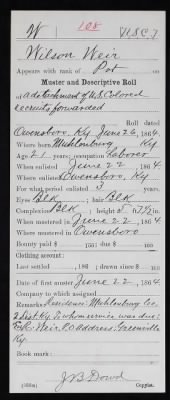 W 108 U.S.C.T.
Wilson Weir
Appears with rank of Pvt on
Muster and Descriptive Roll
of a detachment of U.S. Colored
recruits forwarded
Roll dated
Owensboro, Ky June 26, 1864.
Where born Muhlenburg Ky
Age 21 years; occupation Laborer
When enlisted June 22, 1864.
Where enlisted Owensboro, Ky
For what period enlisted 3 years.
Eyes Blk; hair Blk
Complexion Blk; height 5 ft. 7½ in.
When mustered in June 22, 1864.
Where mustered in Owensboro
Bounty paid $ 100; due $ 100
Clothing account:
Last settled , 186 ; drawn since $ 100
Date of first muster June 22, 1864.
Company to which assigned
Remarks: Residence: Muhlenburg Co.
2 Dist. Ky. To whom service was due:
Weir, P.O. address: Greenville
Ky
Book mark:
J B Dowd
Copyist.